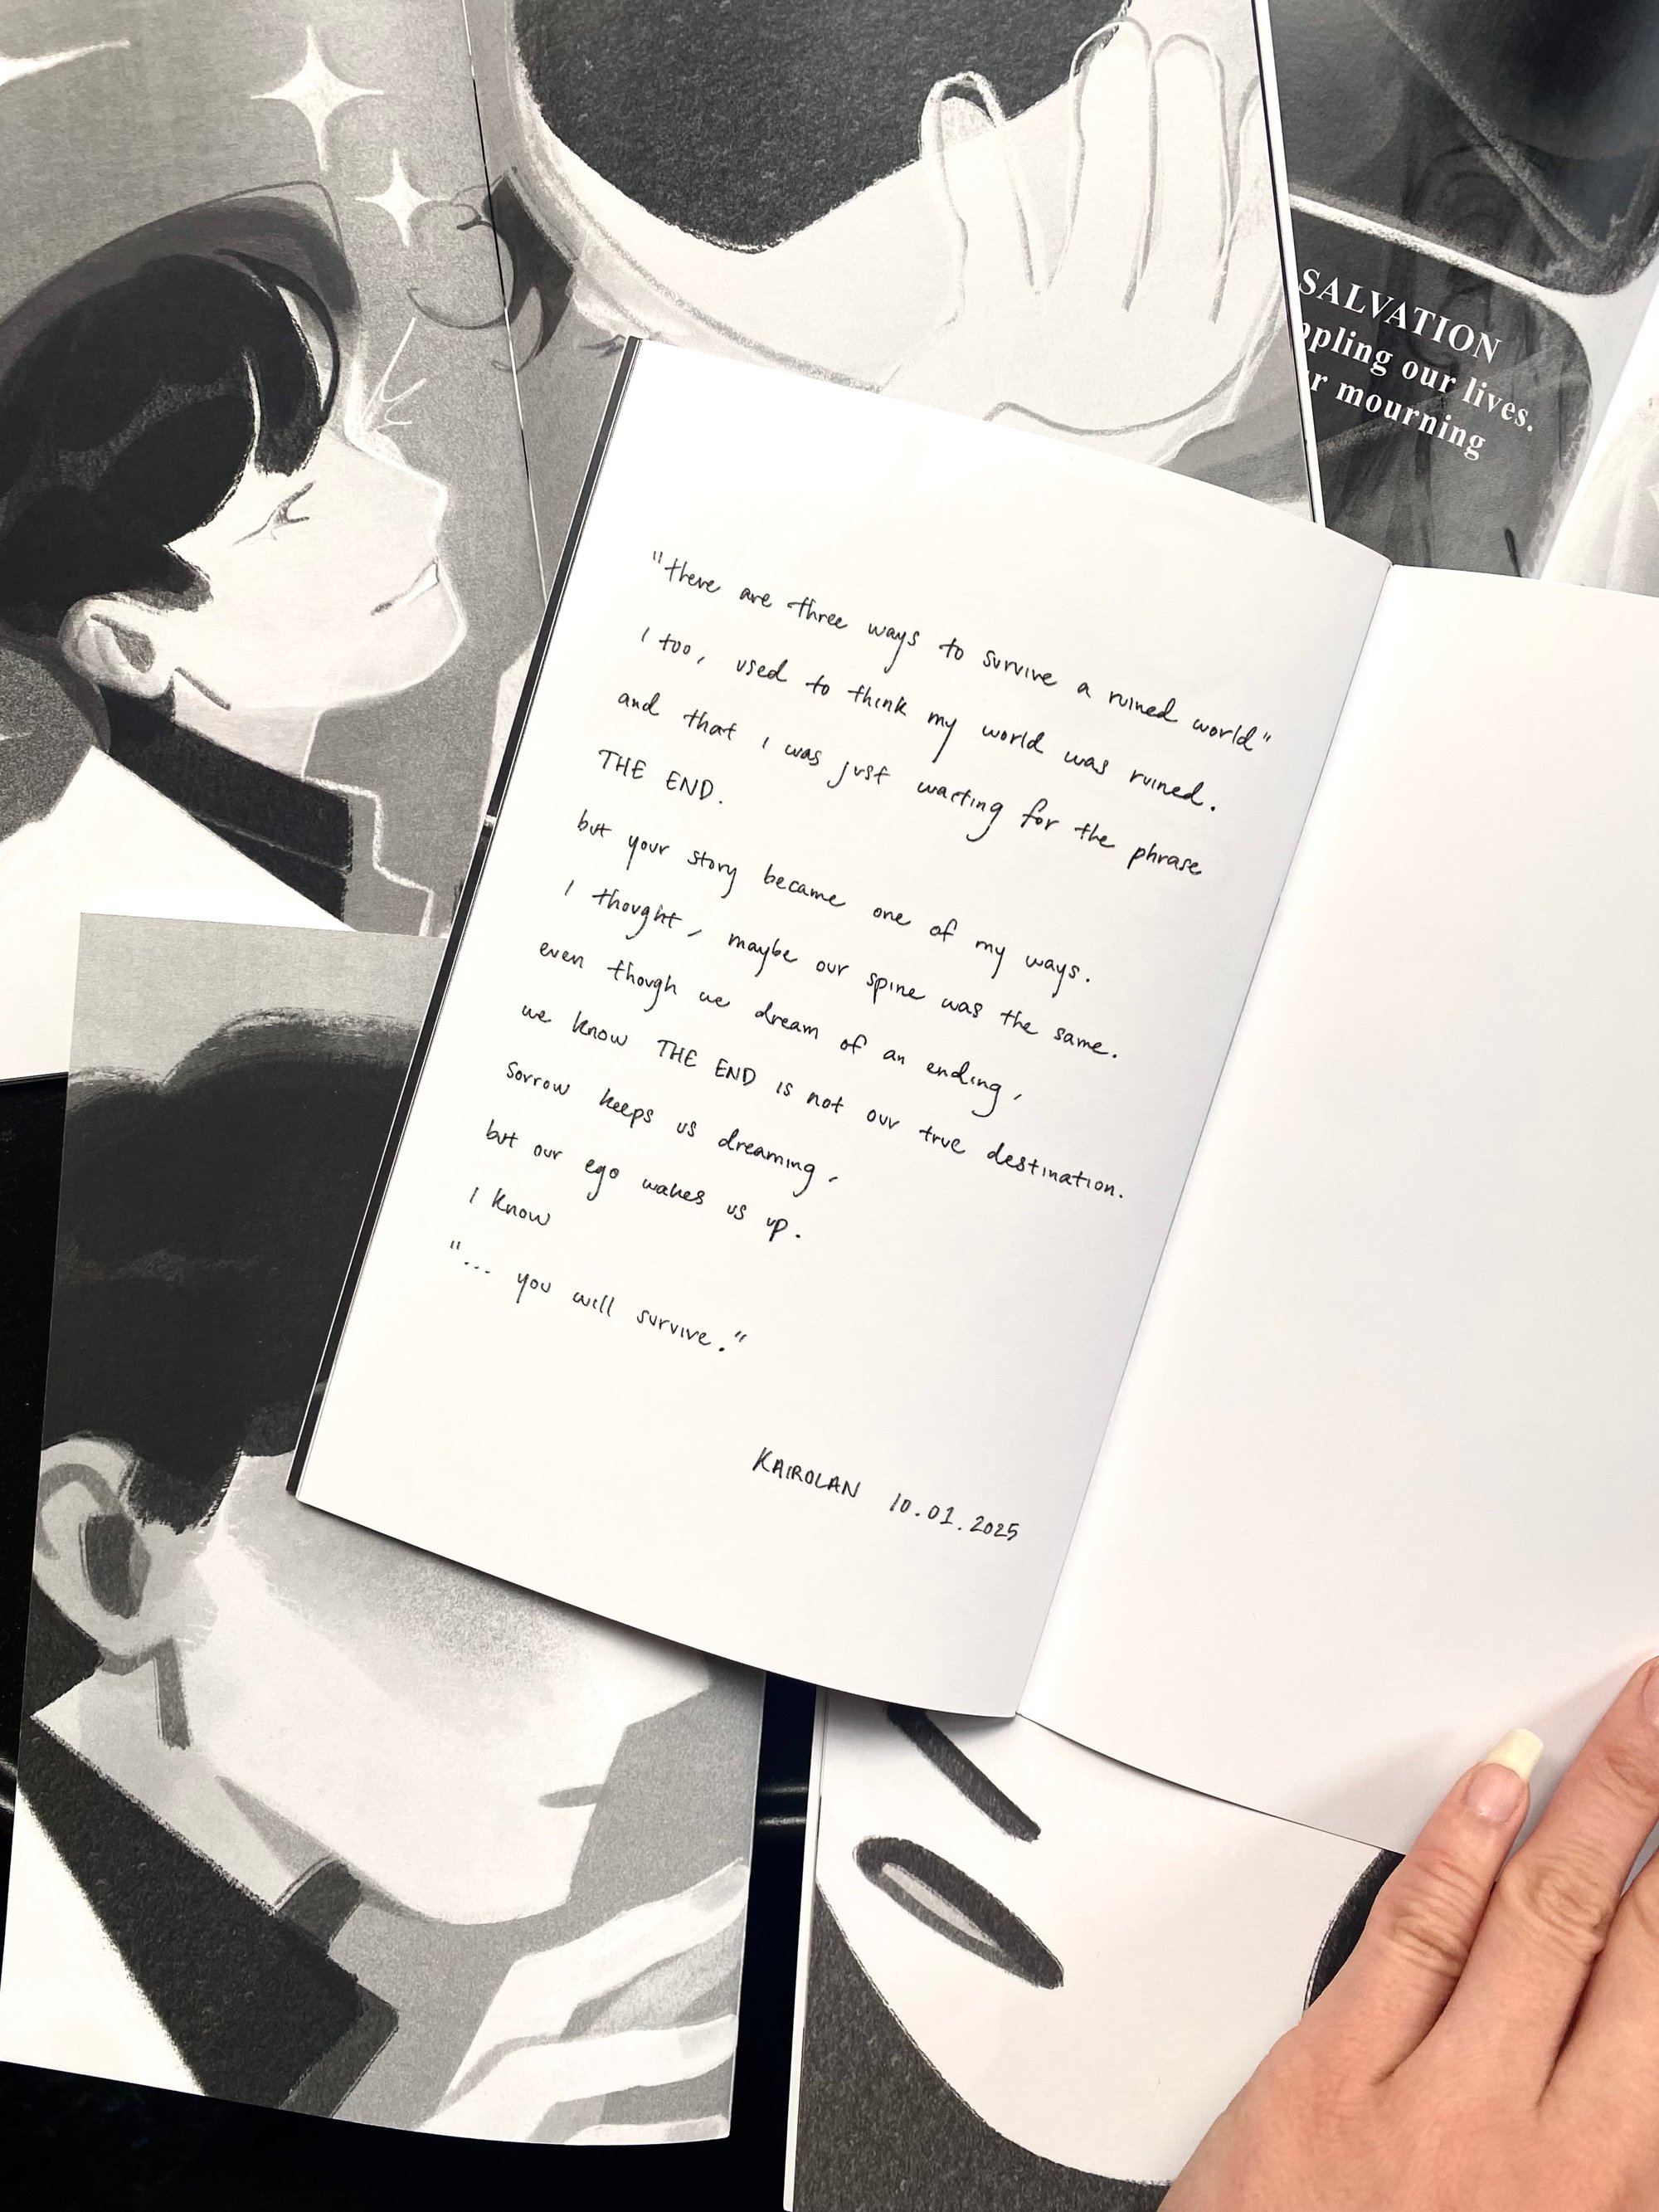 SALVATION
our lives.
mourning
"there are three ways to survive a ruined world"
I too, used to think my world was ruined.
and that I was just waiting for the phrase
THE END.
but your story became one of my ways.
I thought, maybe our spine was the same.
even though we dream of an ending,
we know THE END is not our true destination.
sorrow keeps us dreaming,
but our ego wakes us up.
I know
"... you will survive."
KAIROLAN 10.01.2025